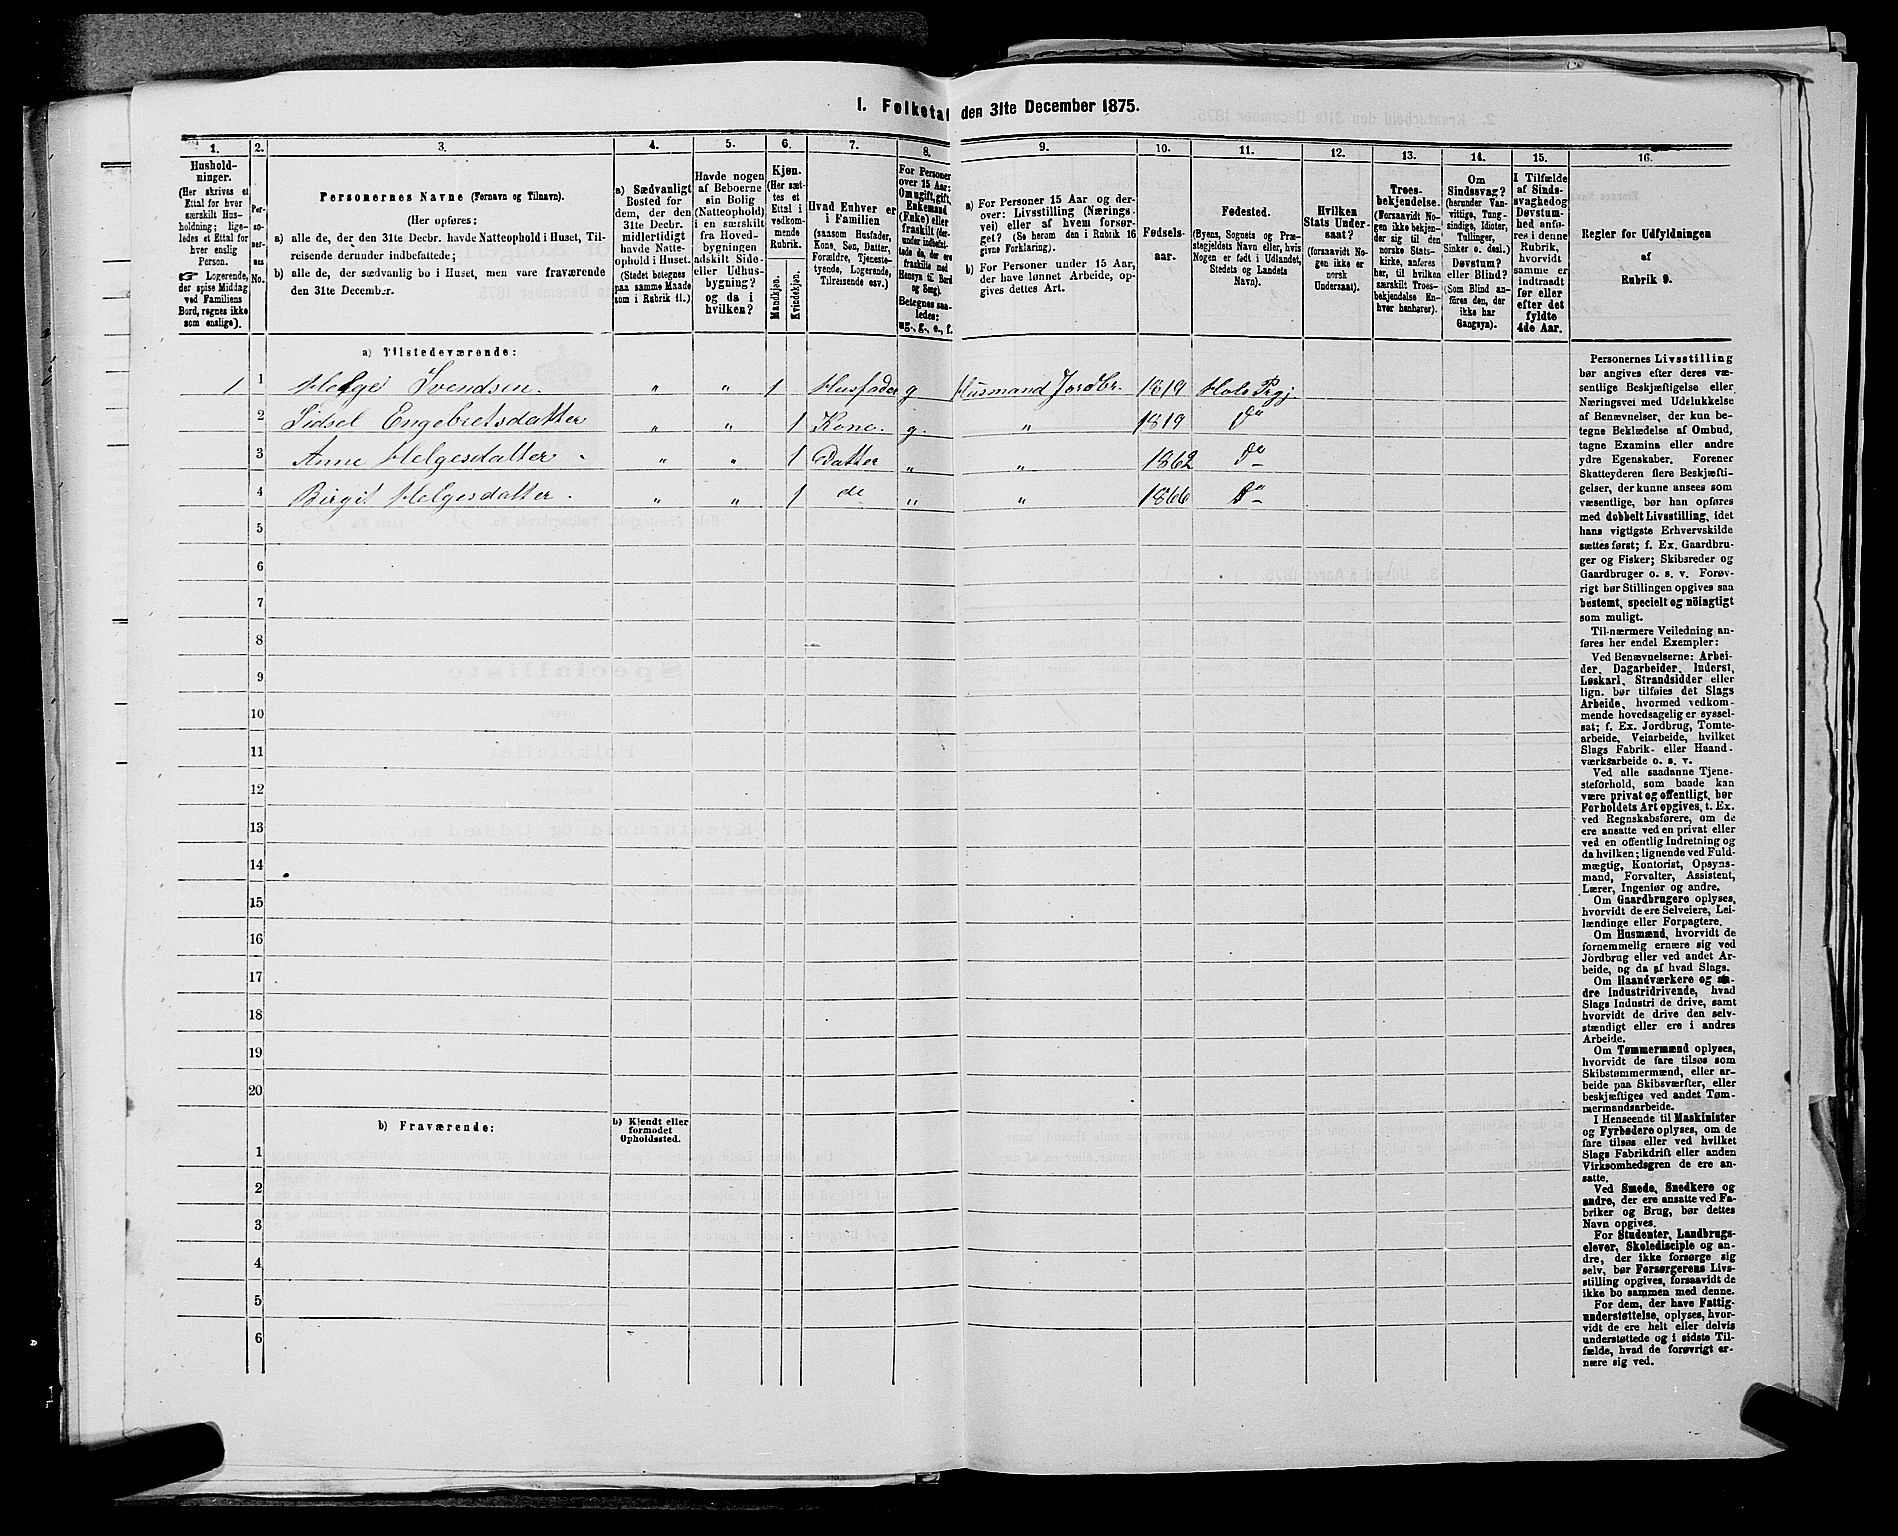 1. Folketal den 31te December 1875.
1. 2. 3. 4. 5. 6. 7. 8. 9. 10. 11. 12. 13. 14. 15. 16.
Hushold-
ninger.
(Her skrives et
Ettal for hver
særskilt Hus-
holdning; lige-
ledes et Ettal for
hver enslig
Person.
☞ Logerende,
der spise Middag
ved Familiens
Bord, regnes ikke
som enslige).
Per-
so-
ner-
nes
No.
Personernes Navne (Fornavn og Tilnavn).
(Her opføres:
a) alle de, der den 31te Decbr. havde Natteophold i Huset, Til-
reisende derunder indbefattede;
b) alle de, der sædvanlig bo i Huset, men vare fraværende
den 31te December.
a) Sædvanligt
Bosted for
dem, der den
31te Decbr.
midlertidigt
havde Natte-
ophold i Huset.
(Stedet betegnes
paa samme Maade
som i Rubrik 11.)
Havde nogen
af Beboerne
sin Bolig
(Natteophold)
i en særskilt
fra Hoved-
bygningen
adskilt Side-
eller Udhus-
bygning?
og da i
hvilken?
Kjøn.
(Her sæt-
tes et
Ettal i
vedkom-
mende
Rubrik.
Mandkjøn.
Kvindekjøn.
Hvad Enhver er
i Familien
(saasom Husfader,
Kone, Søn, Datter,
Forældre, Tjeneste-
tyende, Logerende,
Tilreisende osv.)
For Personer
over 15 Aar:
Om ugift, gift,
Enkemand
(Enke) eller
fraskilt (der-
under indbefat-
tede de, der ere
fraskilte med
Hensyn til Bord
og Seng).
Betegnes saa-
ledes:
ug., g., e., f.
a) For Personer 15 Aar og der-
over: Livsstilling (Nærings-
vei) eller af hvem forsør-
get? (Se herom den i Rubrik 16
givne Forklaring).
b) For Personer under 15 Aar,
der have lønnet Arbeide, op-
gives dettes Art.
Fødsels-
aar.
Fødested.
(Byens, Sognets og Præ-
stegjeldets Navn eller, hvis
Nogen er født i Udlandet,
Stedets og Landets
Navn).
Hvilken
Stats Under-
saat?
(forsaavidt No-
gen ikke er
norsk
Undersaat).
Troes-
bekjendelse.
(Forsaavidt No-
gen ikke bekjen-
der sig til den
norske Stats-
kirke, anføres
her, til hvilken
særskilt Troes-
bekjendelse En-
hver henhører).
Om
Sindssvag?
(herunder Van-
vittige, Tung-
sindige, Idioter,
Tullinger,
Sinker o. desl.)
Døvstum?
eller Blind?
(Som Blind an-
føres den, der
ikke har
Gangsyn).
I Tilfælde
af Sinds-
svaghed og
Døvstum-
hed anfø-
res i denne
Rubrik,
hvorvidt
samme er
indtraadt
før eller
efter det
fyldte
4de Aar.
Regler for Udfyldningen
af
Rubrik 9.
a) Tilstedeværende:
1 1 Helge Svendsen. " " 1 Husfader g Husmand Jordbr. 1819 Hole Prgj
2 Sidsel Engebretsdatter " " 1 Kone. g. " 1819 do
3 Anne Helgesdatter " " 1 Datter " " 1862 do
4 Birgit Helgesdatter. " " 1 do " " 1866 do
5
6
7
8
9
10
11
12
13
14
15
16
17
18
19
20
b) Fraværende:
b) Kjendt eller
formodet
Opholdssted.
1
2
3
4
5
6
Personernes Livsstilling
bør angives efter deres væ-
sentlige Beskjæftigelse eller
Næringsvei med Udelukkelse
af Benævnelser, der kun be-
tegne Beklædelse af Ombud,
tagne Examina eller andre
ydre Egenskaber. Forener
Skatteyderen flere Beskjæfti-
gelser, der kunne ansees som
væsentlige, bør han opføres
med dobbelt Livsstilling, idet
hans vigtigste Erhvervskilde
sættes først; f. Ex. Gaardbru-
ger og Fisker; Skibsreder og
Gaardbruger o. s. v. Forøv-
rigt bør Stillingen opgives saa
bestemt, specielt og nöiagtigt
som muligt.
Til nærmere Veiledning an-
føres her endel Exempler:
Ved Benævnelserne: Arbei-
der, Dagarbeider, Inderst,
Løskarl, Strandsidder eller
lign. bør tilføies det Slags
Arbeide, hvormed vedkom-
mende hovedsagelig er syssel-
sat; f. Ex. Jordbrug, Tomte-
arbeide, Veiarbeide, hvilket
Slags Fabrik- eller Haand-
værksarbeide o. s. v.
Ved alle saadanne Tjene-
steforhold, som baade kan
være privat og offentligt, bør
Forholdets Art opgives, t. Ex.
ved Regnskabsførere, om de
ere ansatte ved en privat eller
ved en offentlig Indretning og
da hvilken; lignende ved Fuld-
mægtig, Kontorist, Opsyns-
mand, Forvalter, Assistent,
Lærer, Ingeniør og andre.
Om Gaardbrugere oplyses,
hvorvidt de ere Selveiere, Lei-
lændinge eller Forpagtere.
Om Husmænd, hvorvidt de
fornemmelig ernære sig ved
Jordbrug eller ved andet Ar-
beide, og da af hvad Slags.
Om Haandværkere og an-
dre Industridrivende, hvad
Slags Industri de drive, samt
hvorvidt de drive den selv-
stændigt eller ere i andres
Arbeide.
Om Tømmermænd oplyses,
hvorvidt de fare tilsøs som
Skibstømmermænd, eller ar-
beide paa Skibsværfter, eller
beskjæftiges ved andet Tøm-
mermandsarbeide.
I Henseende til Maskinister
og Fyrbødere oplyses, om de
fare tilsøs eller ved hvilket
Slags Fabrikdrift eller anden
Virksomhedsgren de ere an-
satte.
Ved Smede, Snedkere og
andre, der ere ansatte ved Fa-
briker og Brug, bør dettes
Navn opgives.
For Studenter, Landbrugs-
elever, Skoledisciple og an-
dre, der ikke forsørge sig
selv, bør Forsørgerens Livs-
stilling opgives, forsaavidt de
ikke bo sammen med denne.
For dem, der have Fattig-
understøttelse, oplyses, hvor-
vidt de ere helt eller delvis
understøttede og i sidste Til-
fælde, hvad de forøvrigt er-
nære sig ved.